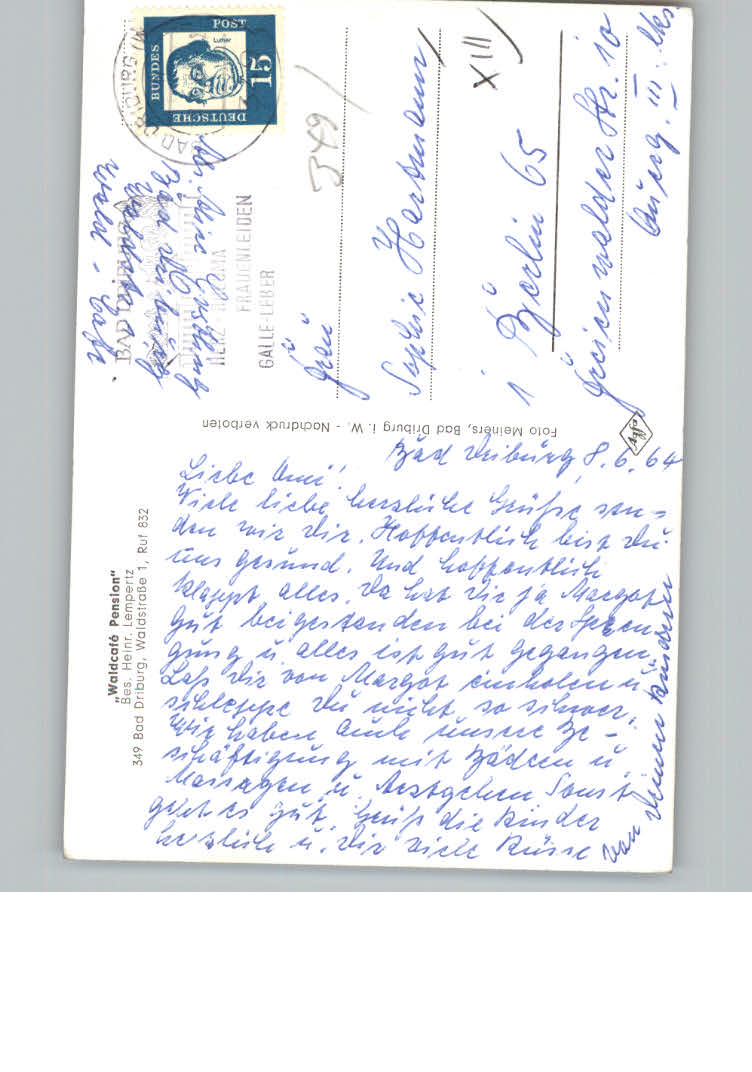 „Waldcafé Pension“
Bes. Heinr. Lempertz
349 Bad Driburg, Waldstraße 1, Ruf 832
Bad Driburg, 8.6.64
Liebe Omi!
Viele liebe, herzliche Grüße sen-
den wir Dir. Hoffentlich bist Du
uns gesund. Und hoffentlich
klappt alles. Da hat Dir ja Margot
gut beigestanden bei der
gung u. alles ist gut gegangen.
Laß Dir von Margot einholen u.
schleppe Du nicht so schwer.
Wir haben auch unsere Be-
schäftigung mit Bädern u.
Massagen u. Sonst
geht es gut. Grüß die Kinder
herzlich u. Dir viele Küsse
von Deinen Kindern
Foto Meiners, Bad Driburg i. W. - Nachdruck verboten
agfa
DEUTSCHE
BUNDES
POST
15
Luther
BAD DRIBURG
BAD DRIBURG
HERZ - RHEUMA
FRAUENLEIDEN
GALLE-LEBER
Abs.
Bad Driburg
Waldstr. 1
Wald-Café
349
XIII
Frau
Sophie Hartmann
1 Berlin 65
Str. 10
III. lks